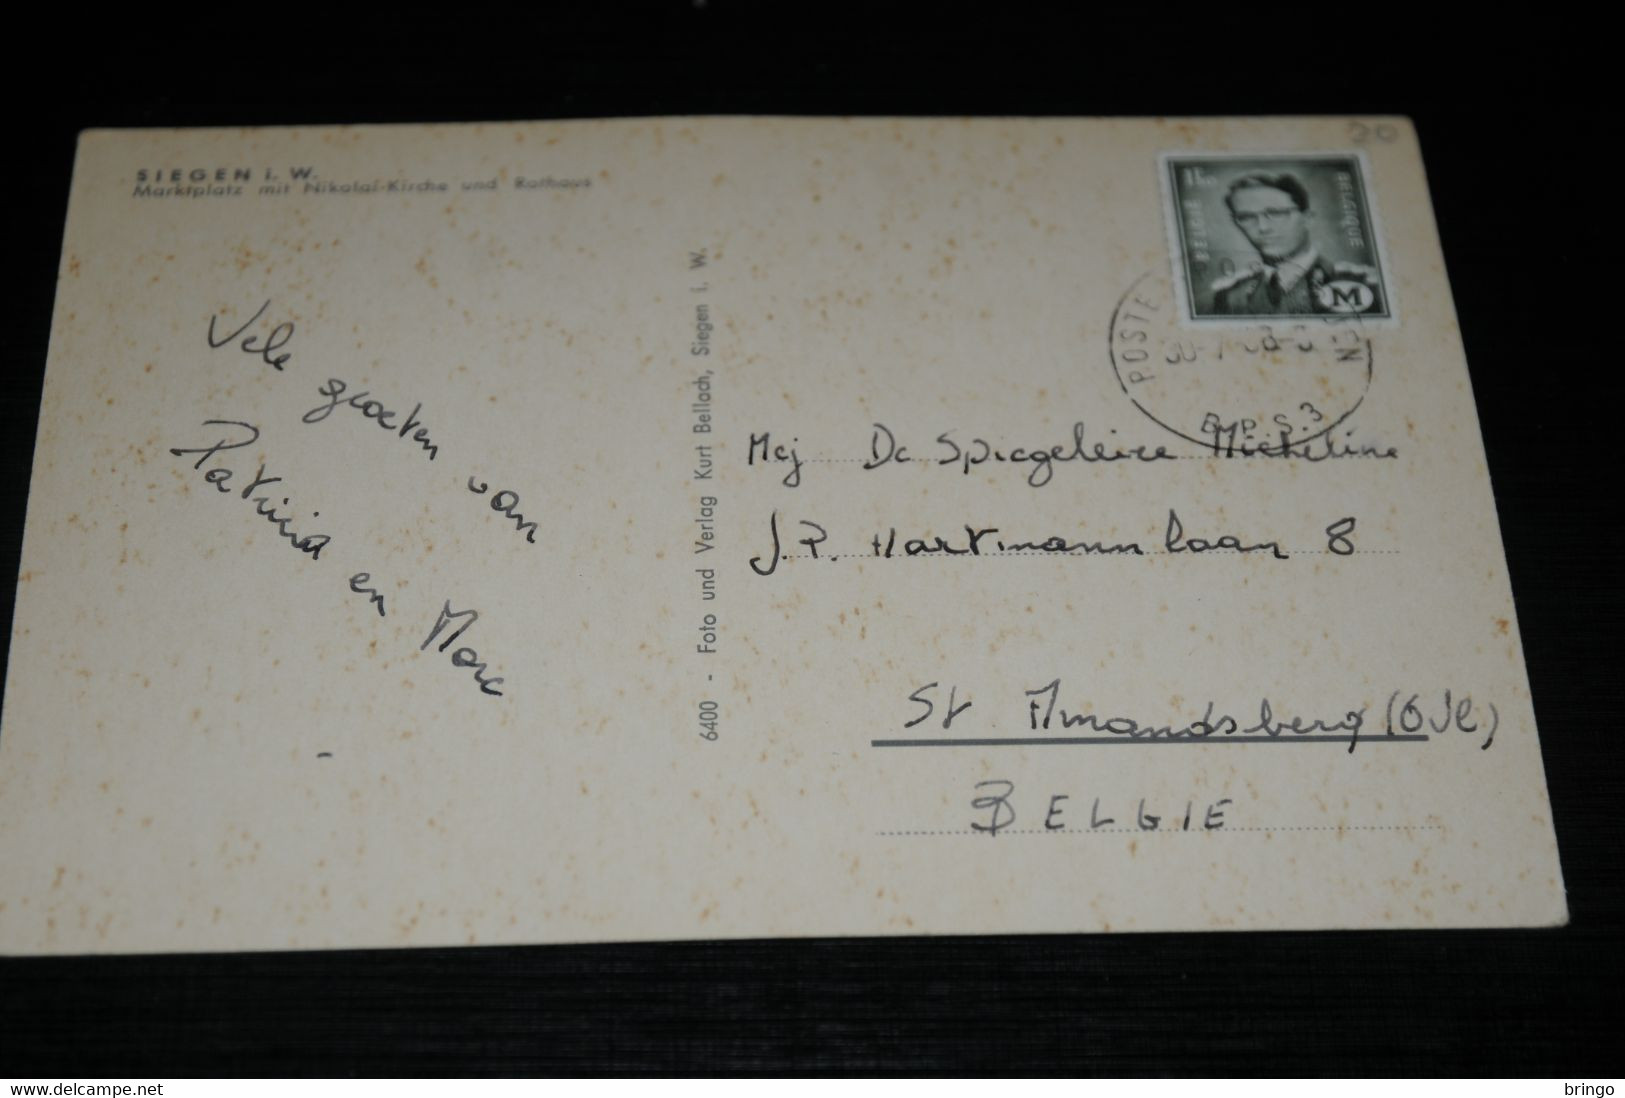 SIEGEN i. W.
Marktplatz mit Nikolai-Kirche und Rathaus
Vele groeten van
Patricia en Marc
6400 - Foto und Verlag Kurt Bellach, Siegen i. W.
20
BELGIE
BELGIQUE
M
POSTE
B.P.S.3
Mej De Spiegeleire Micheline
J.P. Hartmann laan 8
St Amandsberg (OVl)
BELGIE
www.delcampe.net
bringo